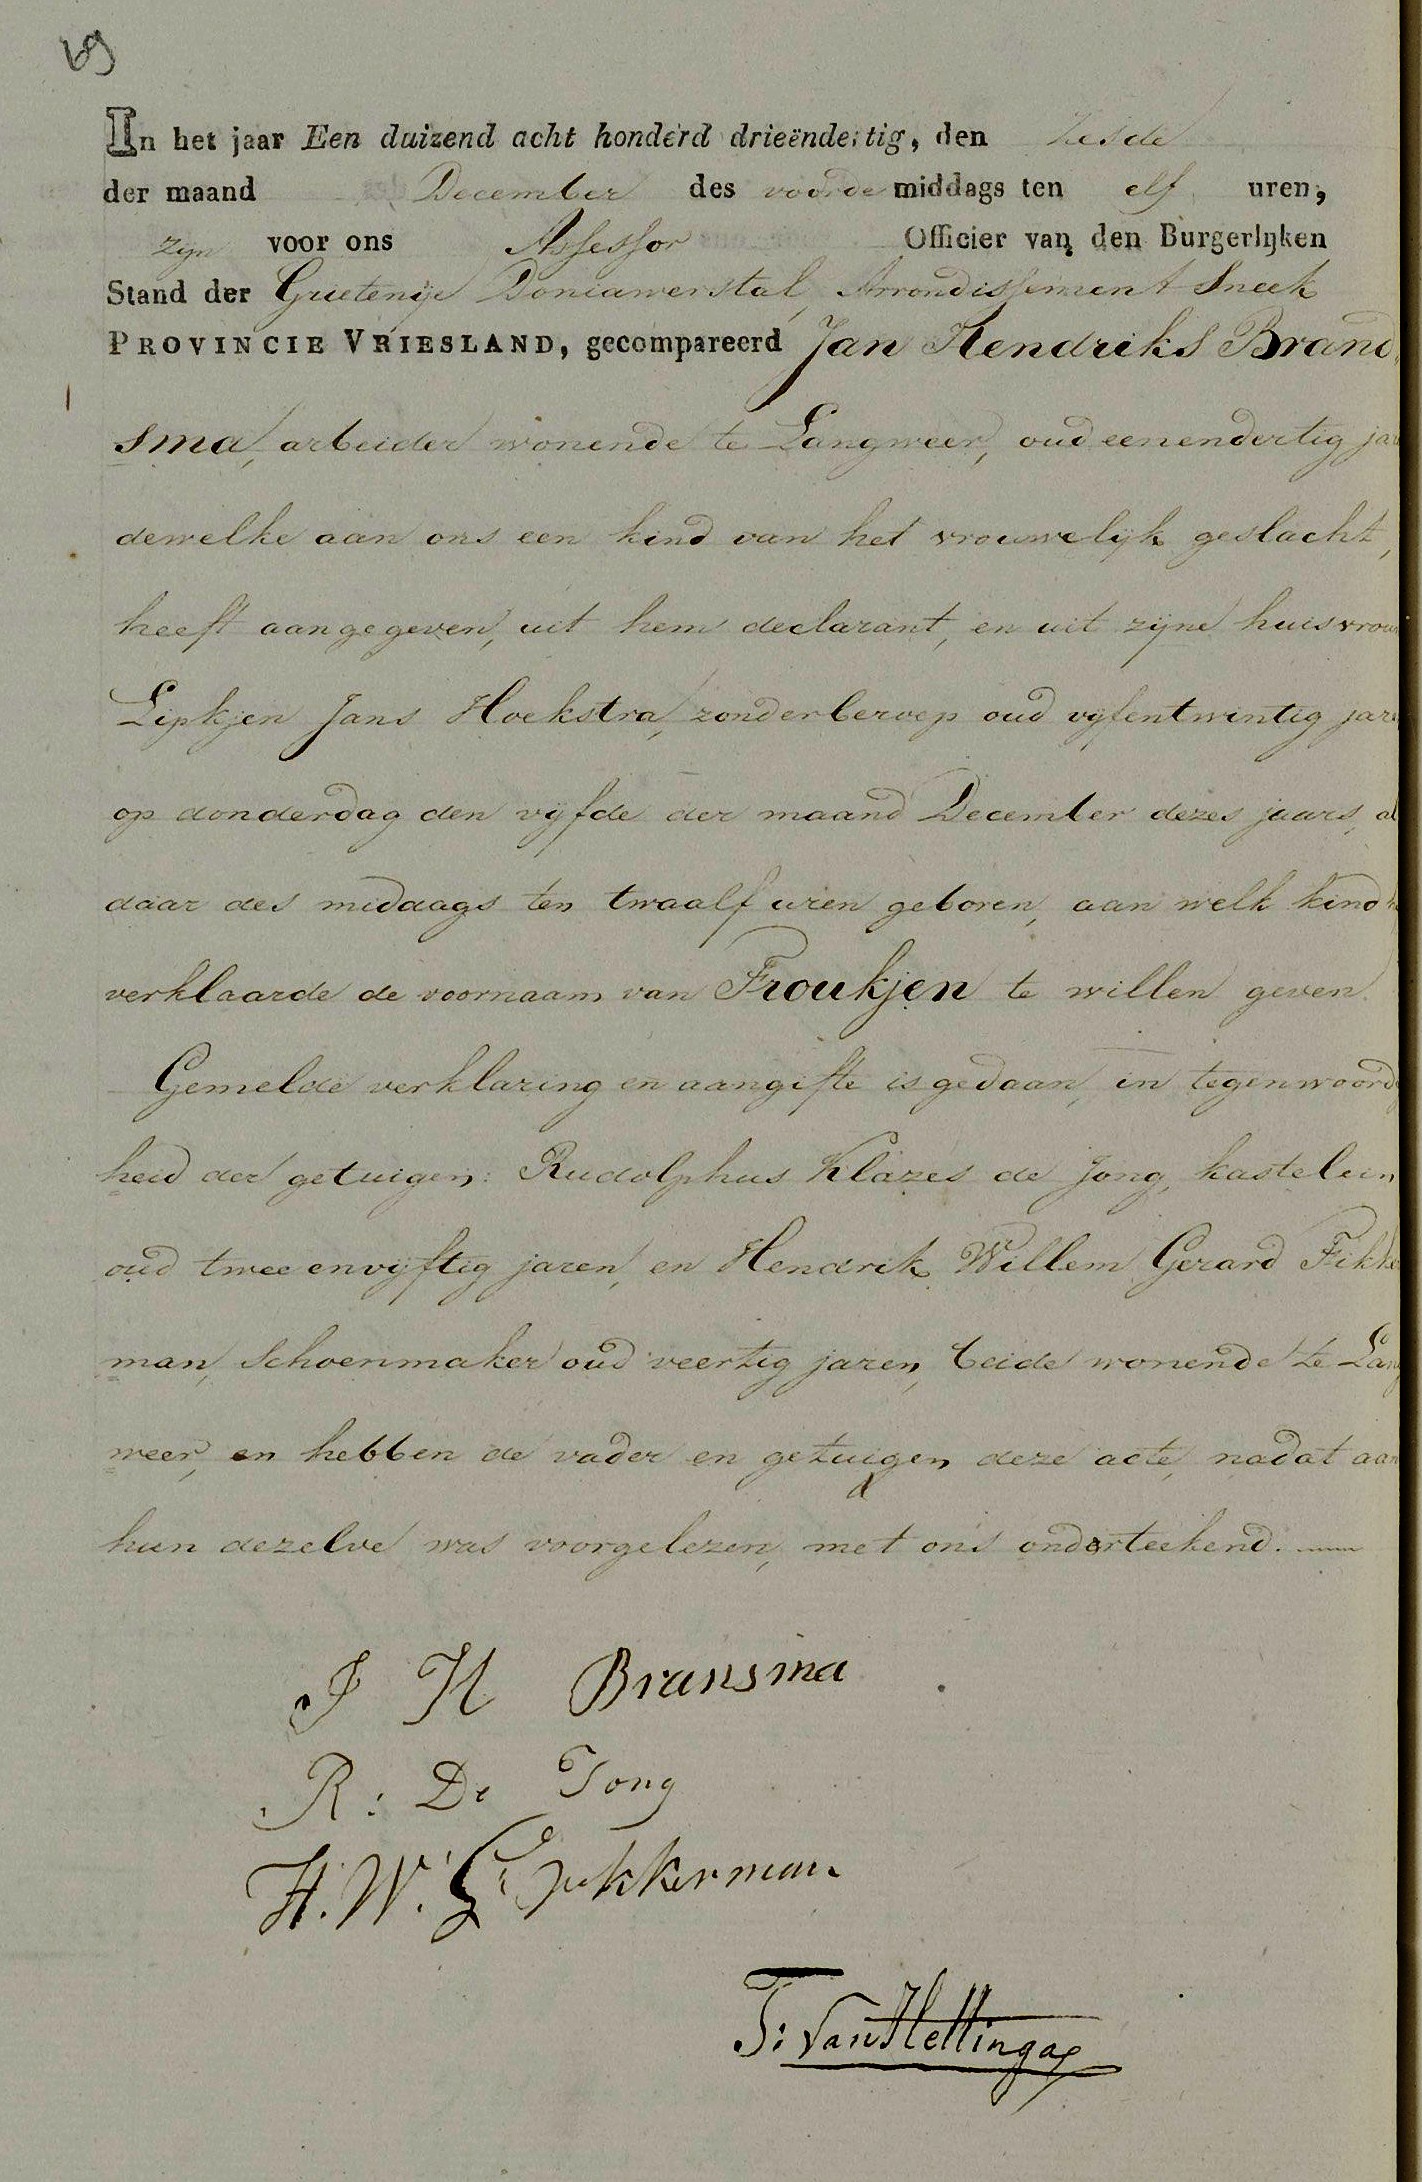 69
In het jaar Een duizend acht honderd drieëndertig, den Zesde
der maand December des voorde middags ten elf uren,
zijn voor ons Assessor Officier van den Burgerlijken
Stand der Grietenije Doniawerstal, Arrondissement Sneek
PROVINCIE VRIESLAND, gecompareerd Jan Hendriks Brand
sma, arbeider wonende te Langweer, oud eenendertig
dewelke aan ons een kind van het vrouwelijk geslacht,
heeft aangegeven, uit hem declarant, en uit zijne huisvrou
Lipkjen Jans Hoekstra, zonder beroep oud vijfentwintig jare
op donderdag den vijfde der maand December dezes jaars, al
daar des middags ten twaalf uren geboren, aan welk kind
verklaarde de voornaam van Froukjen te willen geven.
Gemelde verklaring en aangifte is gedaan, in tegenwoord
heid der getuigen: Rudolphus Klazes de Jong, kastelein
oud twee envijftig jaren, en Hendrik Willem Gerard Fikke
man, Schoenmaker oud veertig jaren, beide wonende te Lang
weer, en hebben de vader en getuigen deze acte, nadat aan
hun dezelve was voorgelezen, met ons onderteekend.
J H Bransma
R: De Jong
H. W. G. Fikkerman
T: van Hettinga